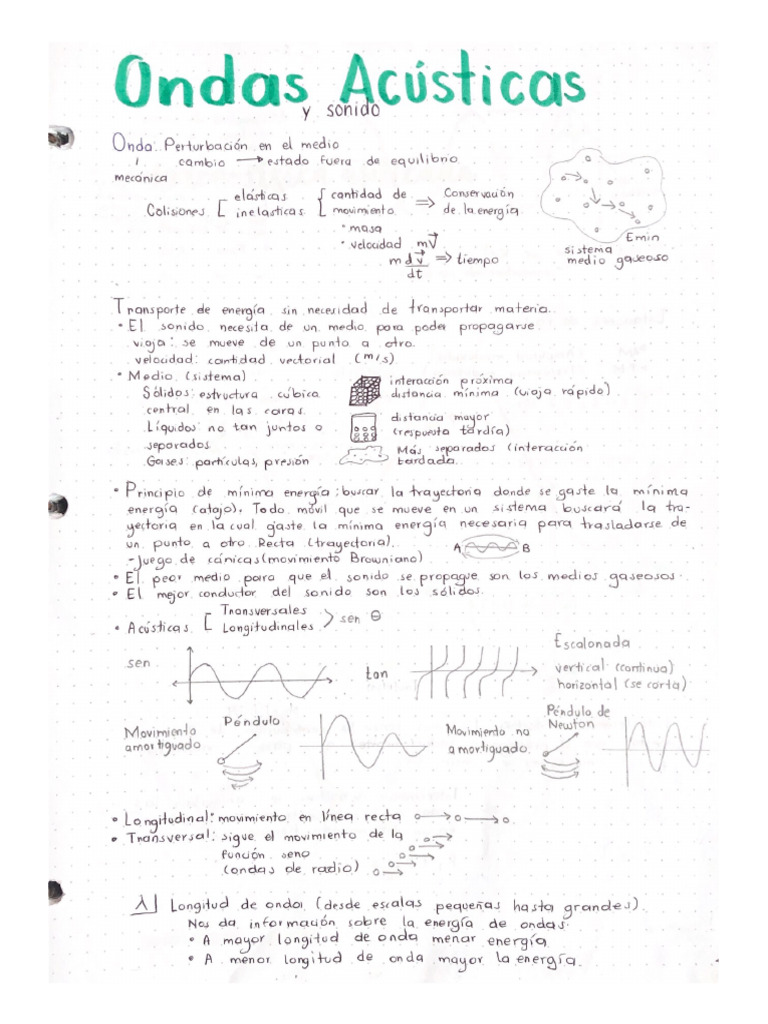 Ondas Acústicas
y sonido
Onda: Perturbación en el medio
cambio → estado fuera de equilibrio
mecánica
Colisiones [ elásticas { cantidad de ⇒ Conservación
inelasticas movimiento de la energía
• masa
• velocidad mV⃗
m dv⃗ ⇒ tiempo
dt
Emin
sistema
medio gaseoso
Transporte de energía sin necesidad de transportar materia.
• El sonido necesita de un medio para poder propagarse.
viaja: se mueve de un punto a otro.
velocidad: cantidad vectorial (m/s)
• Medio (sistema)
Sólidos: estructura cúbica
central en las caras.
interacción próxima
distancia mínima (viaja rápido)
Líquidos no tan juntos o
separados
distancia mayor
(respuesta tardía)
Gases: partículas, presión
Más separados (interacción
tardada.
• Principio de mínima energía: buscar la trayectoria donde se gaste la mínima
energía (atajo). Todo móvil que se mueve en un sistema buscará la tra-
yectoria en la cual gaste la mínima energía necesaria para trasladarse de
un punto a otro Recta (trayectoria).
A B
- Juego de cánicas (movimiento Browniano)
• El peor medio para que el sonido se propague son los medios gaseosos.
• El mejor conductor del sonido son los sólidos.
• Acústicas [ Transversales
Longitudinales > sen θ
sen
tan
Escalonada
vertical (continua)
horizontal (se corta)
Movimiento
amortiguado
Péndulo
Movimiento no
amortiguado
Péndulo de
Newton
• Longitudinal: movimiento en línea recta
• Transversal: sigue el movimiento de la
función seno
(ondas de radio)
λ| Longitud de onda (desde escalas pequeñas hasta grandes).
Nos da información sobre la energía de ondas.
• A mayor longitud de onda menar energía
• A menor longitud de onda mayor la energía.